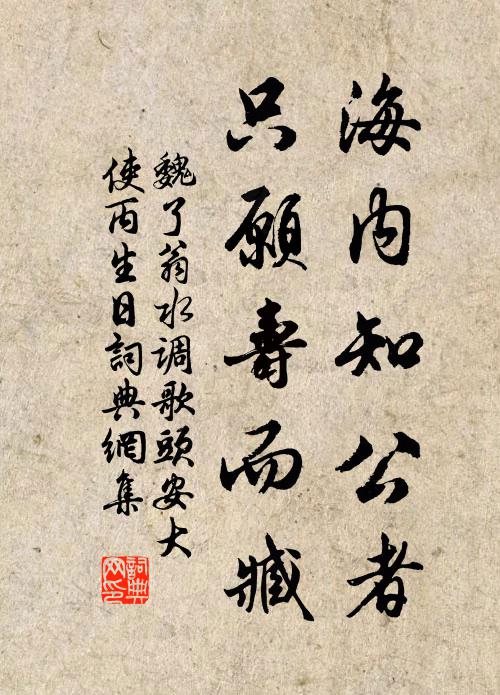 海内知公者
只願壽而臧
魏了翁水调歌頭安大
使丙生日詞典網集
詞典
网印